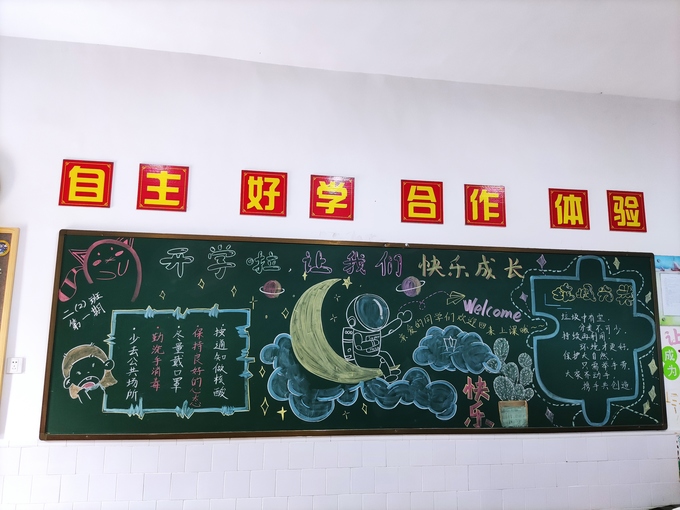 自主 好学 合作 体验
开学啦,让我们快乐成长
二(2)班
第一期
按通知做核酸
保持良好的心态
尽量戴口罩
·勤洗手消毒
·少去公共场所
Welcome
亲爱的同学们欢迎回来上课啦
快乐
垃圾分类
垃圾中有宝,
分类不可少。
持续再利用,
环境才更好。
保护大自然,
只需举手劳,
大家齐动手,
携手共创造
让
成为